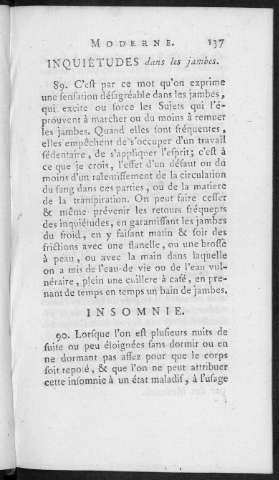 MODERNE. 137
INQUIÉTUDES dans les jambes.
89. C'est par ce mot qu'on exprime
une sensation désagréable dans les jambes,
qui excite ou force les Sujets qui l'é-
prouvent à marcher ou du moins à remuer
les jambes. Quand elles sont fréquentes,
elles empêchent de s'occuper d'un travail
sédentaire, de s'appliquer l'esprit; c'est à
ce que je crois, l'effet d'un défaut ou du
moins d'un ralentissement de la circulation
du sang dans ces parties, ou de la matiere
de la transpiration. On peut faire cesser
& même prévenir les retours fréquents
des inquiétudes, en garantissant les jambes
du froid, en y faisant matin & soir des
frictions avec une flanelle, ou une brosse
à peau, ou avec la main dans laquelle
on a mis de l'eau-de vie ou de l'eau vul-
néraire, plein une cuillere à café, en pre-
nant de temps en temps un bain de jambes.
INSOMNIE.
90. Lorsque l'on est plusieurs nuits de
suite ou peu éloignées sans dormir ou en
ne dormant pas assez pour que le corps
soit reposé, & que l'on ne peut attribuer
cette insomnie à un état maladif, à l'usage